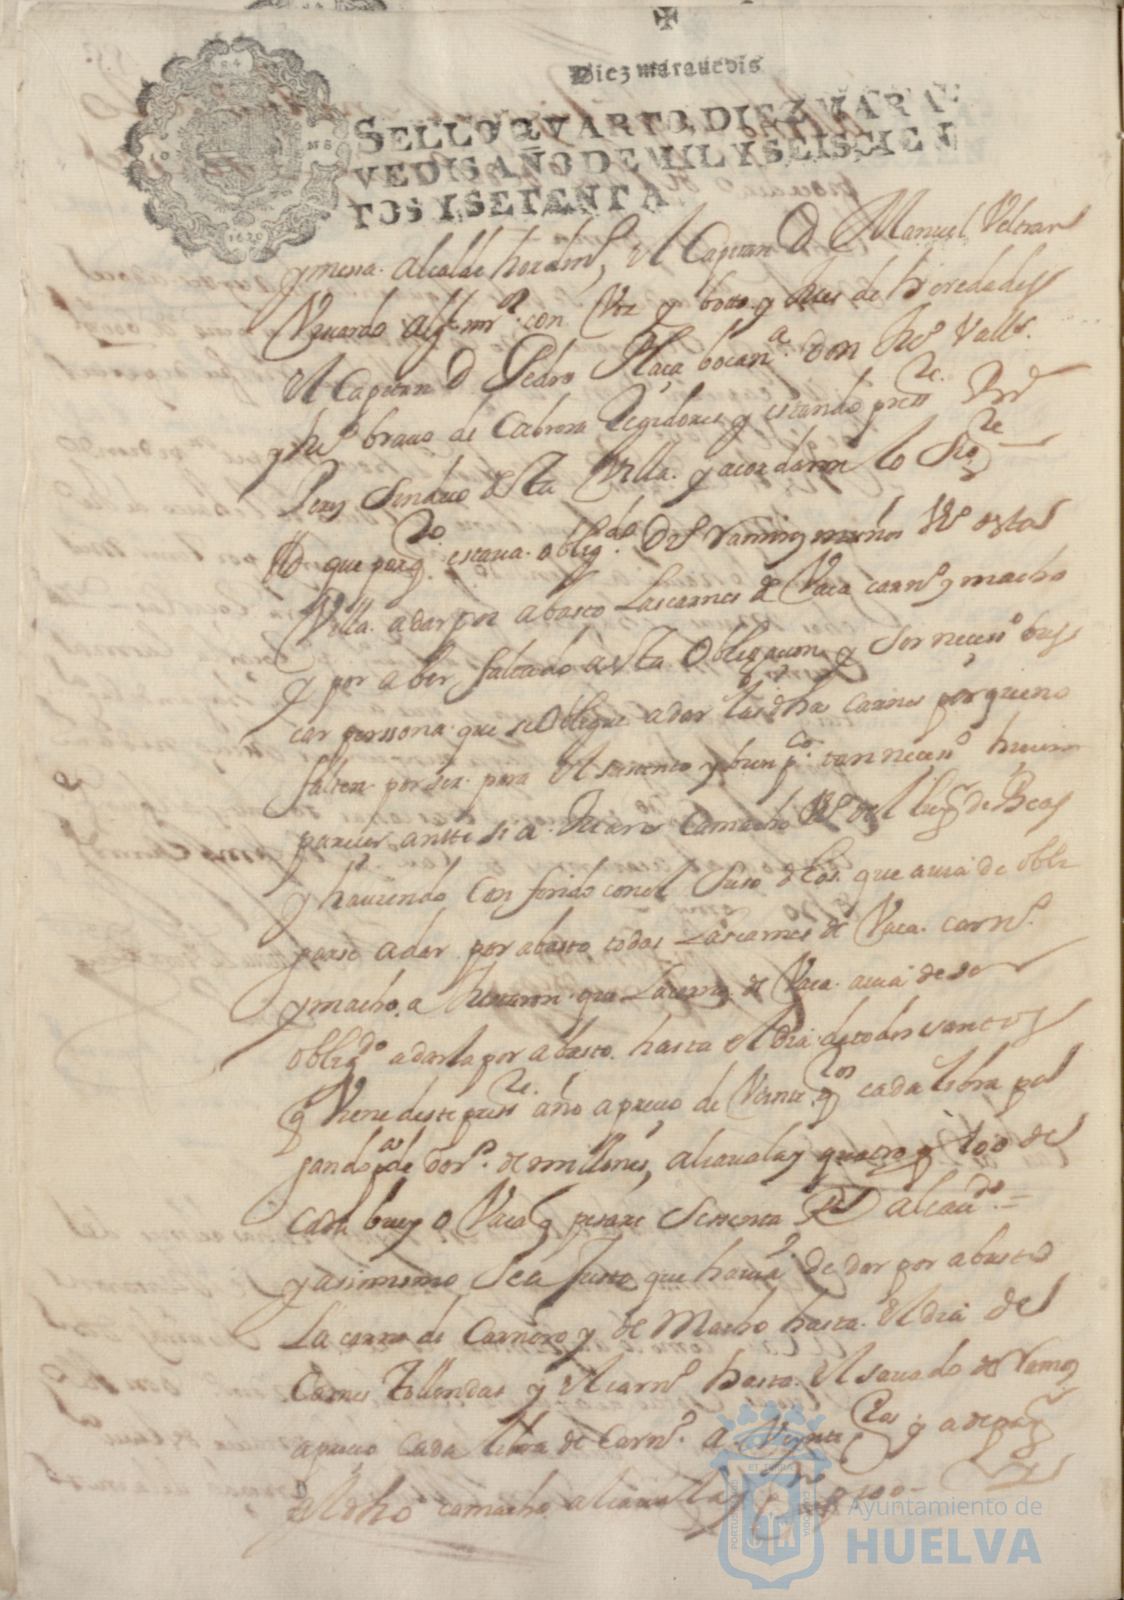 Diez maravedis
SELLO QVARTO, DIEZ MARA
VEDIS AÑO DE MIL Y SEISCIEN
TOS Y SETENTA
y messa alcalde hordin^o, el Capitan D Manuel Veltran
alg^l m^r con Voz y botto y de heredades
el Capitan D Pedro don Valls
y bravo de Cabrera Regidores y estando press^te
Perez Sendico desta Villa y acordaron lo sig^te
que por q^to estava oblig^do Ramirez muños V^o desta
Villa a dar por abasto las carnes de Vaca carn^o y macho
y por aber faltado a esta obligacion y ser neces^o bus
car perssona que se obligue a dar las dhas carnes por que no
falten por ser para el sustento y bien p^co tan neces^o hicieron
parecer antte si a Camacho V^o del lug^r de Beas
y haviendo conferido con el suso dho que avia de obli
garse a dar por abasto todas las carnes de Vaca carn^o
y macho que la carne de Vaca avia de ser
oblig^do a darla por abasto hasta el dia de todos santos
q Viene deste press^te año a precio de Veinte q^tos cada libra pa
gando de dr^o de millones, alcavala y quatro y 100 de
cada buey o Vaca q pesare sessenta R^s
y asimismo se a justo que havia de dar por abasto
la carne de Carnero y de Macho hasta el dia de
Carnes tollendas y el carn^o hasta el savado de Ramos
a precio cada libra de Carn^o a Veynte q^tos y a de pag^r
el dho camacho alcavala y 100
Ayuntamiento de
HUELVA